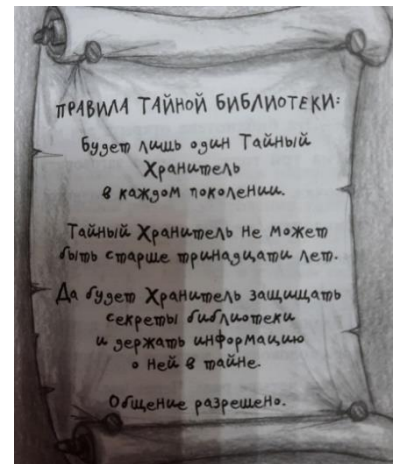 ПРАВИЛА ТАЙНОЙ БИБЛИОТЕКИ:
Будет лишь один Тайный
Хранитель
в каждом поколении.
Тайный Хранитель не может
быть старше тринадцати лет.
Да будет Хранитель защищать
секреты библиотеки
и держать информацию
о ней в тайне.
Общение разрешено.